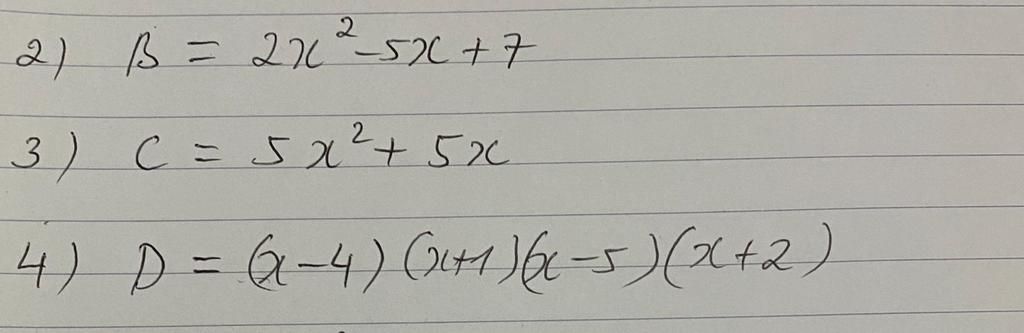 2) B = 2x² - 5x + 7
3) C = 5x² + 5x
4) D = (x - 4) (x+1)(x - 5)(x + 2)